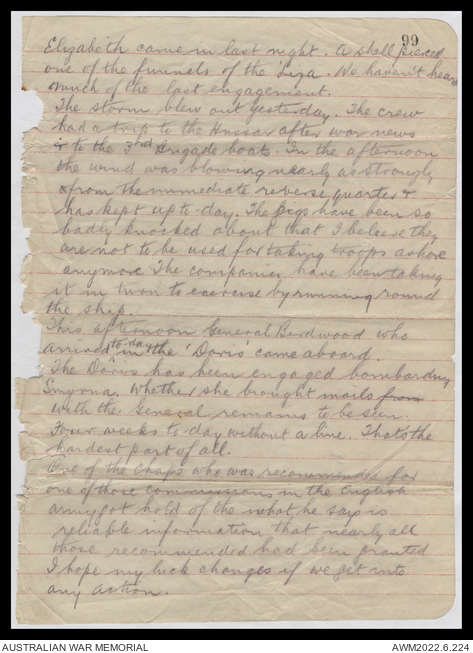 99
Elizabeth came in last night. A shell pierced
one of the funnels of the 'Liza. We haven't hear
much of the last engagement.
The storm blew out yesterday. The crew
had a trip to the Hussar after war news
& to the 3rd Brigade boats. In the afternoon
the wind was blowing nearly as strongly
& from the immediate reverse quarter &
has kept up to-day. The pegs have been so
badly knocked about that I believe they
are not to be used for taking troops ashore
anymore. The companies have been taking
it in turn to exercise by running round
the ship.
This afternoon General Birdwood who
arrived to-day in the 'Doris' came aboard.
The Doris has been engaged bombarding
Smyrna. Whether she brought mails from
with the General remains to be seen.
Four weeks to-day without a line. That's the
hardest part of all.
One of the chaps who was recommended for
one of those commissions in the English
army got hold of the what he says is
reliable information that nearly all
those recommended had been granted
I hope my luck changes if we get into
any action.
AUSTRALIAN WAR MEMORIAL
AWM2022.6.224